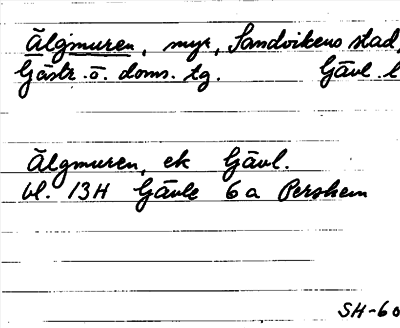 Älgmuren, myr, Sandvikens stad,
Gästr. ö. doms. tg. Gävl. l
Älgmuren, ek Gävl.
bl. 13H Gävle 6a Pershem
SH-60